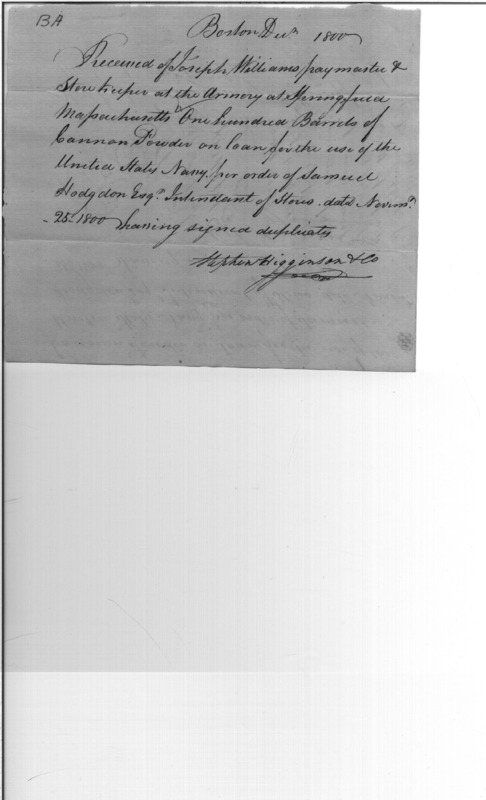 BA
Boston Decr 1800
Received of Joseph Williams paymaster &
Store keeper at the Armory at Springfield
Massachusetts One hundred Barrels of
Cannon Powder on Loan for the use of the
United States Navy, per order of Samuel
Hodgdon Esqr. Intendant of Stores. date Novemr.
25. 1800 having signed duplicates
Stephen Higginson & Co